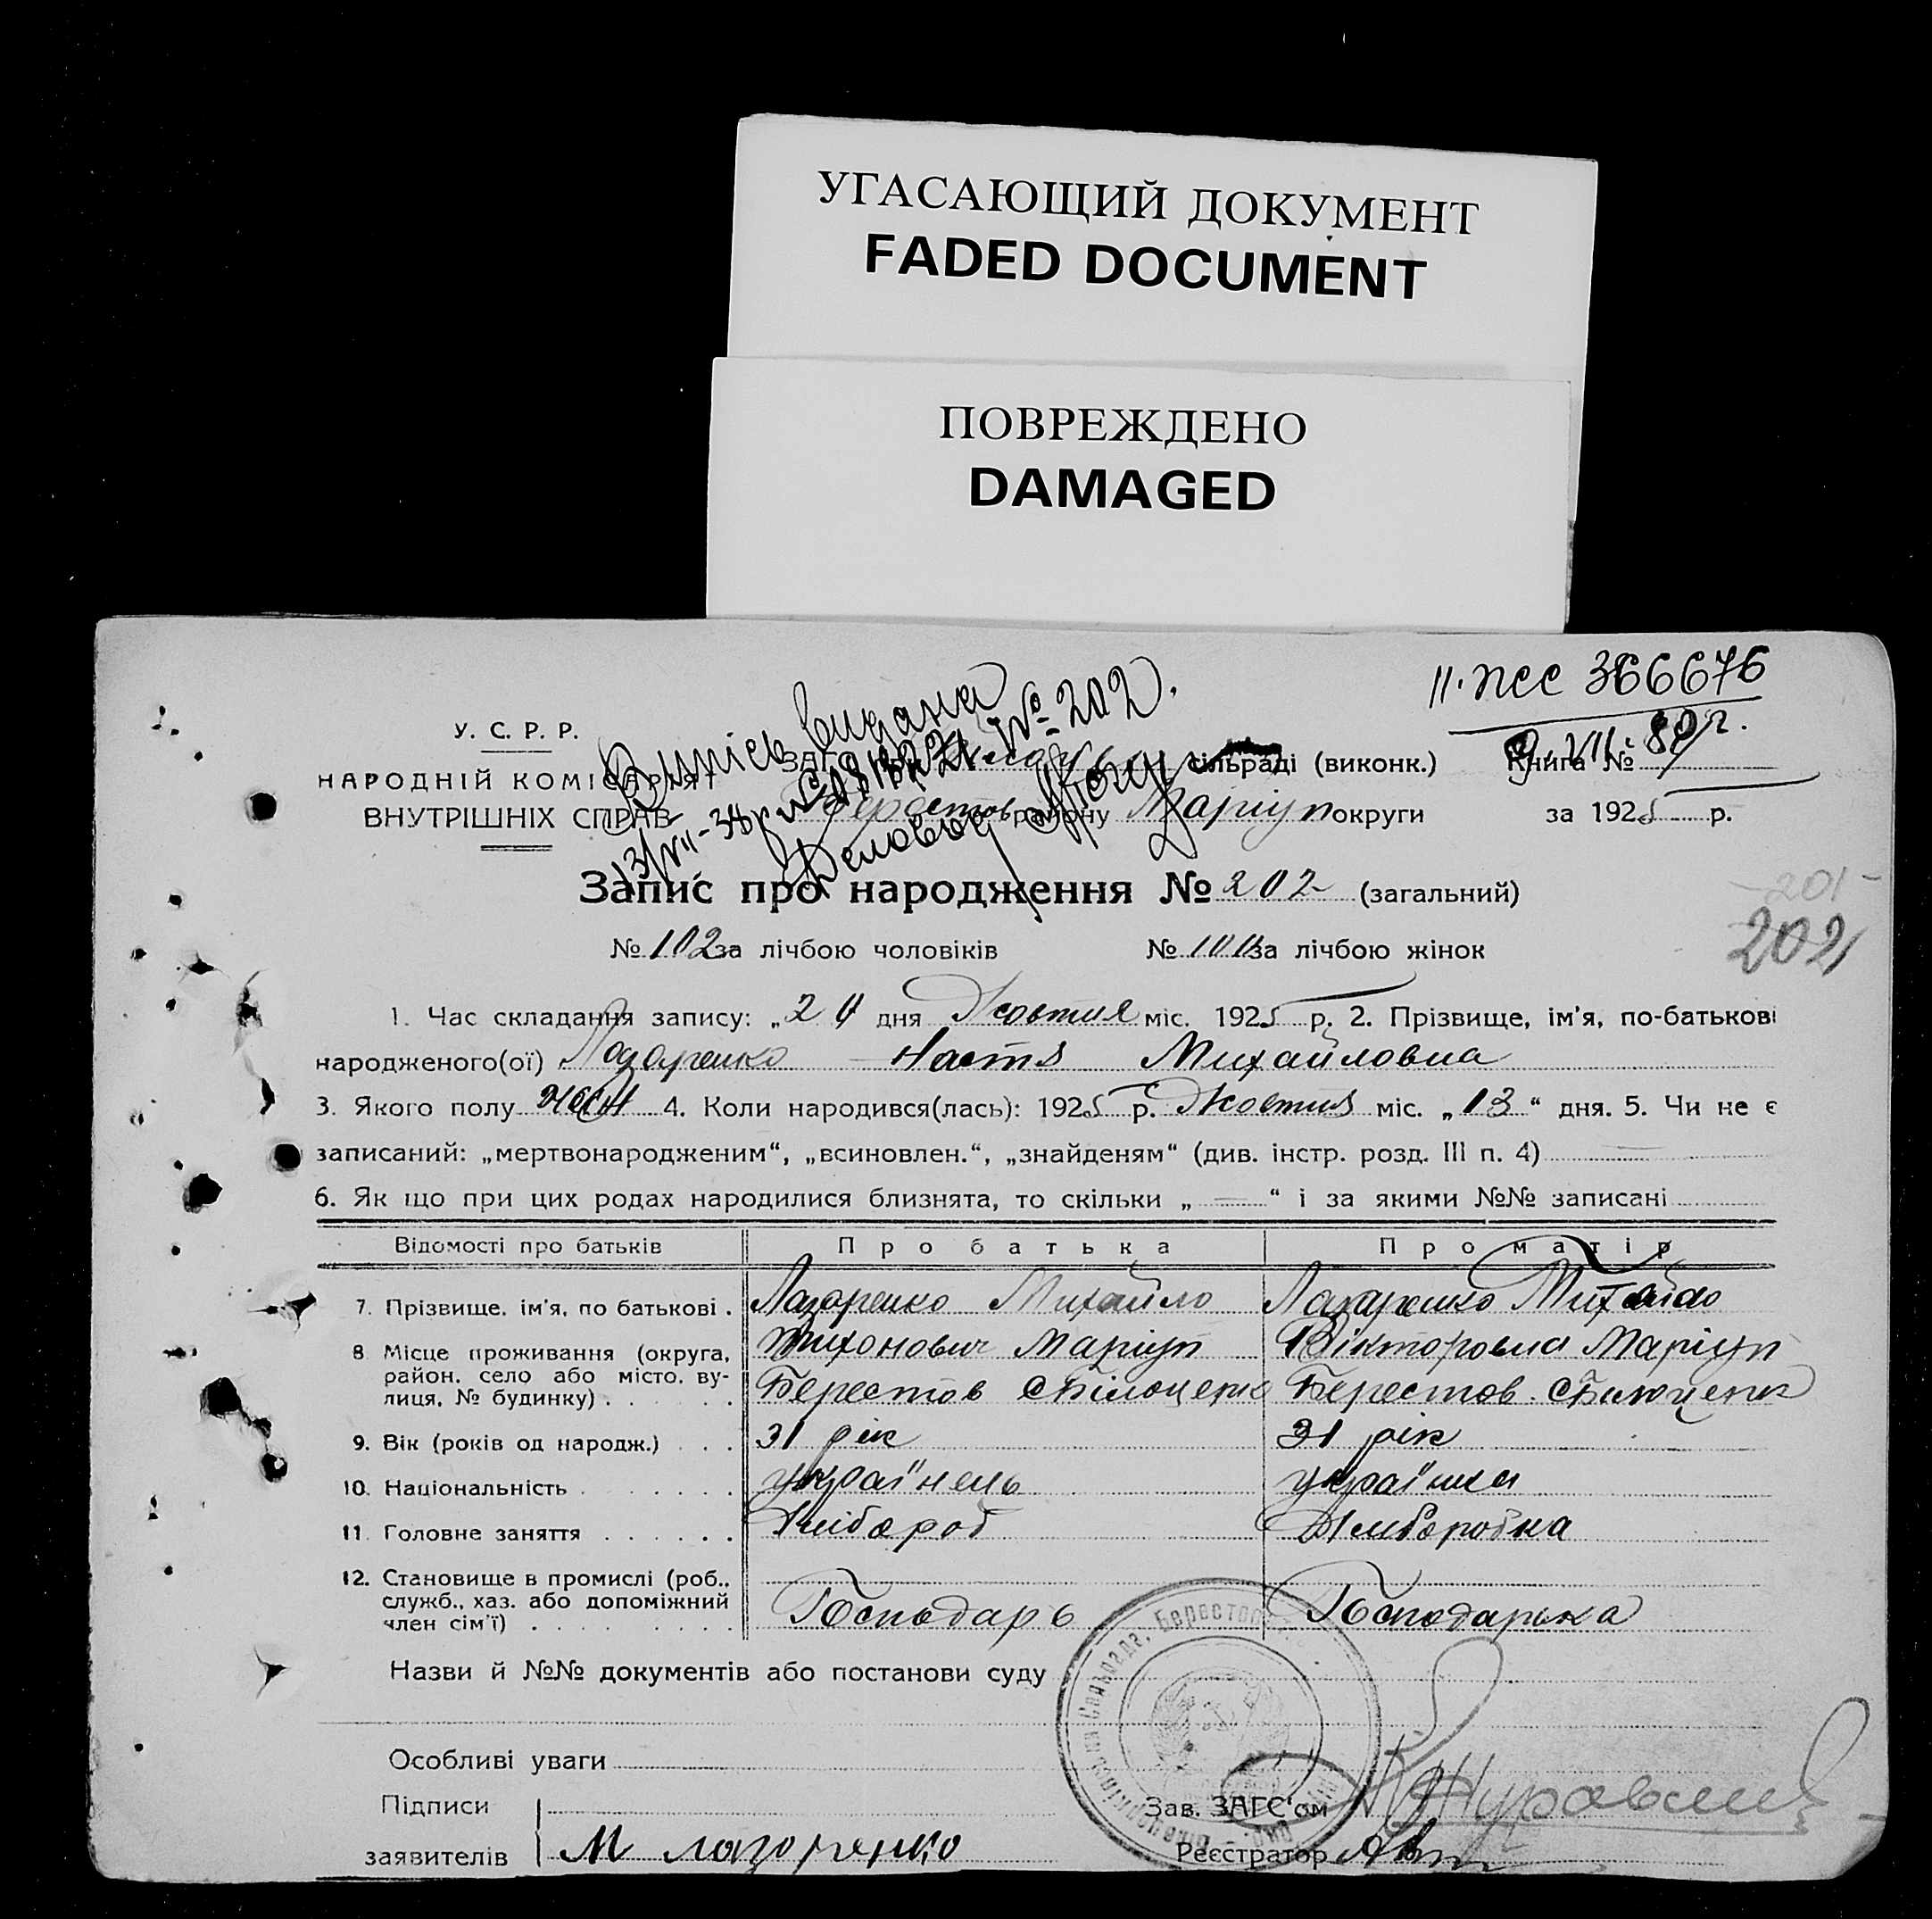 УГАСАЮЩИЙ ДОКУМЕНТ
FADED DOCUMENT
ПОВРЕЖДЕНО
DAMAGED
II. ПСС 366676
9. VII. 80 г.
Випісь видана
№ 202.
У. С. Р. Р.
НАРОДНІЙ КОМІСАРІЯТ
ВНУТРІШНІХ СПРАВ
ЗАГС сільраді (виконк.) Книга №
Берестов району Маріуп округи за 1925 р.
Запис про народження № 202 (загальний)
№ 102 за лічбою чоловіків № 100 за лічбою жінок
201
202
1. Час складання запису: „ 24 дня Жовтня міс. 1925 р. 2. Прізвище, ім'я, по-батькові
народженого(ої) Лазаренко Настя Михайловна
3. Якого полу жін 4. Коли народився(лась): 1925 р. Жовтня міс. „ 13 “ дня. 5. Чи не є
записаний: „мертвонародженим“, „всиновлен.“, „знайденям“ (див. інстр. розд. III п. 4) —
6. Як що при цих родах народилися близнята, то скільки „ — “ і за якими №№ записані
Відомості про батьків Про батька Про матір
7. Прізвище, ім'я, по батькові . Лазаренко Михайло Лазаренко
8. Місце проживання (округа, Тихонович Маріуп Вікторовна Маріуп
район, село або місто, ву-
лиця, № будинку) . . . . . . Берестов Берестов.
9. Вік (років од народж.) . . . 31 рік 31 рік
10. Національність . . . . . . . українець українка
11. Головне заняття . . . . . . Хлібороб Хліборобка
12. Становище в промислі (роб.,
служб., хаз. або допоміжний
член сім'ї) . . . . . . . . . Господарь Господарька
Назви й №№ документів або постанови суду
Особливі уваги
Підписи
Зав. ЗАГС'ом
заявителів М лазоренко Реєстратор